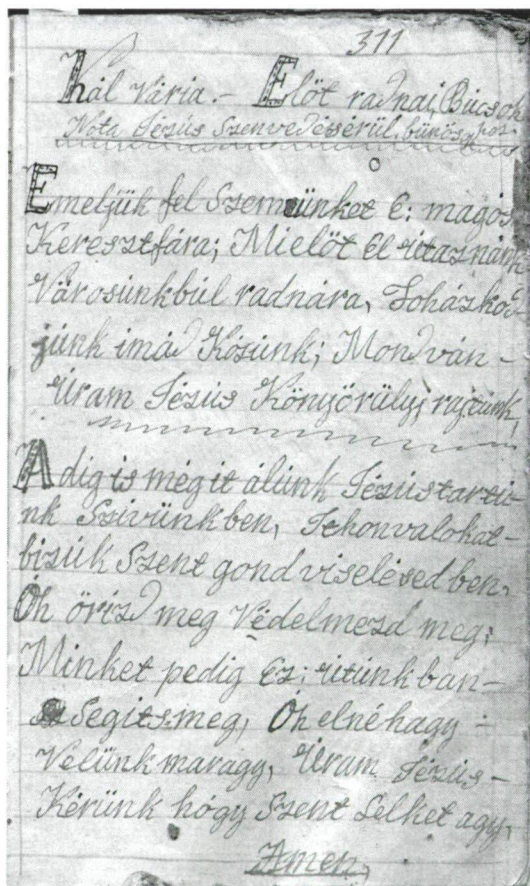 311
Kál Vária.- Elöt radnai, Búcsok
Nóta Jézús Szenvedéssérül, bünös,
Emeljük fel Szemünket E; magós
Keresztfára; Mielöt El Útaznánk
Városúnkbúl radnára, Foházkod
júnk imád Kózúnk; Mondván -
Úram Jézús Könyörüly, rajtúnk,
Adig is még it álúnk Jézús tartú-
nk Szivünkben, Ithonvalokat-
bizúk Szent gond viselésed ben,
Óh örizd meg Védelmezd meg;
Minket pedig Ez; útúnk ban-
Segits meg, Óh el né hagy -
Velünk maragy, Úram Jézús-
Kérünk hógy Szent Lelket agy,
Amen,